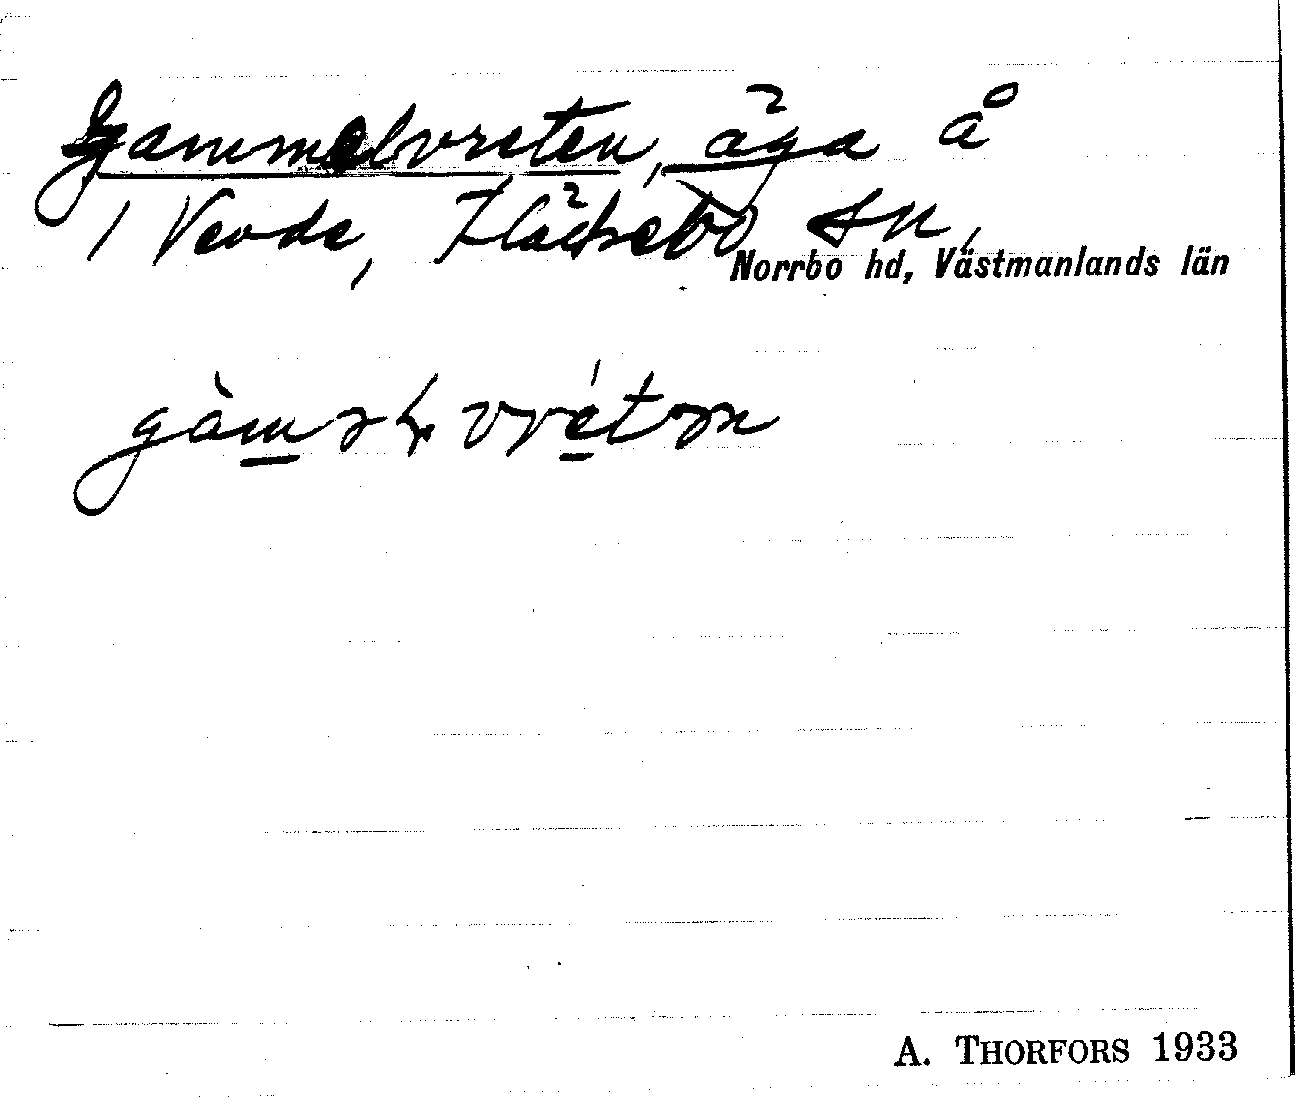 Gammelvreten, äga å
1 Vevde, Fläckebo sn,
Norrbo hd, Västmanlands län
A. THORFORS 1933